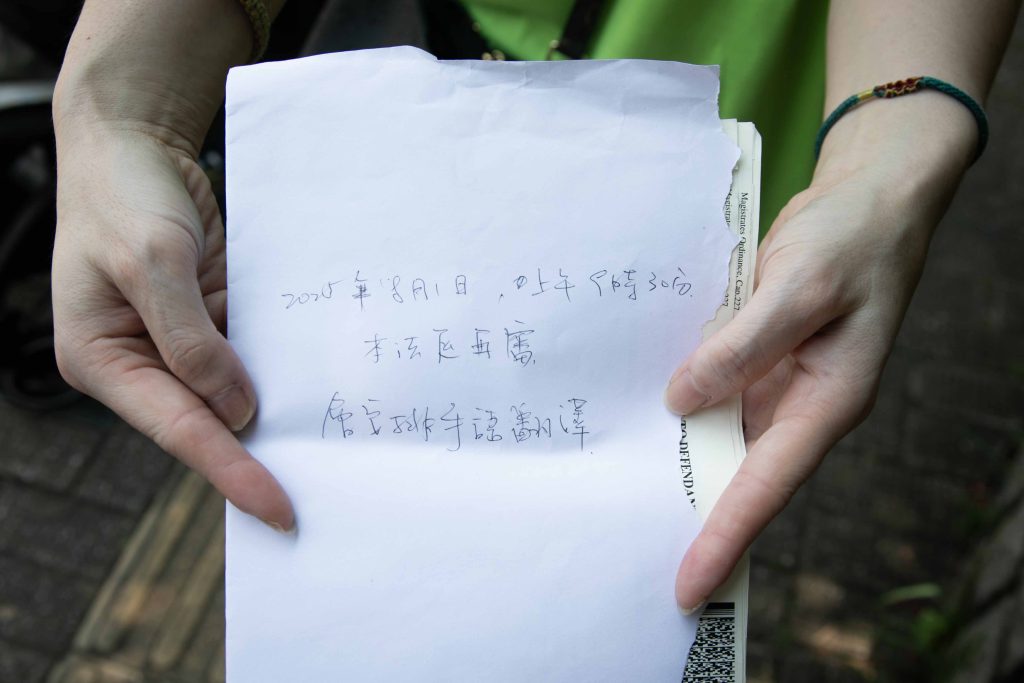 2025年8月1日,上午9時30分.
本法廷再審
會安排手語翻譯.
Magistrates Ordinance, Cap.227
TO DEFENDAN